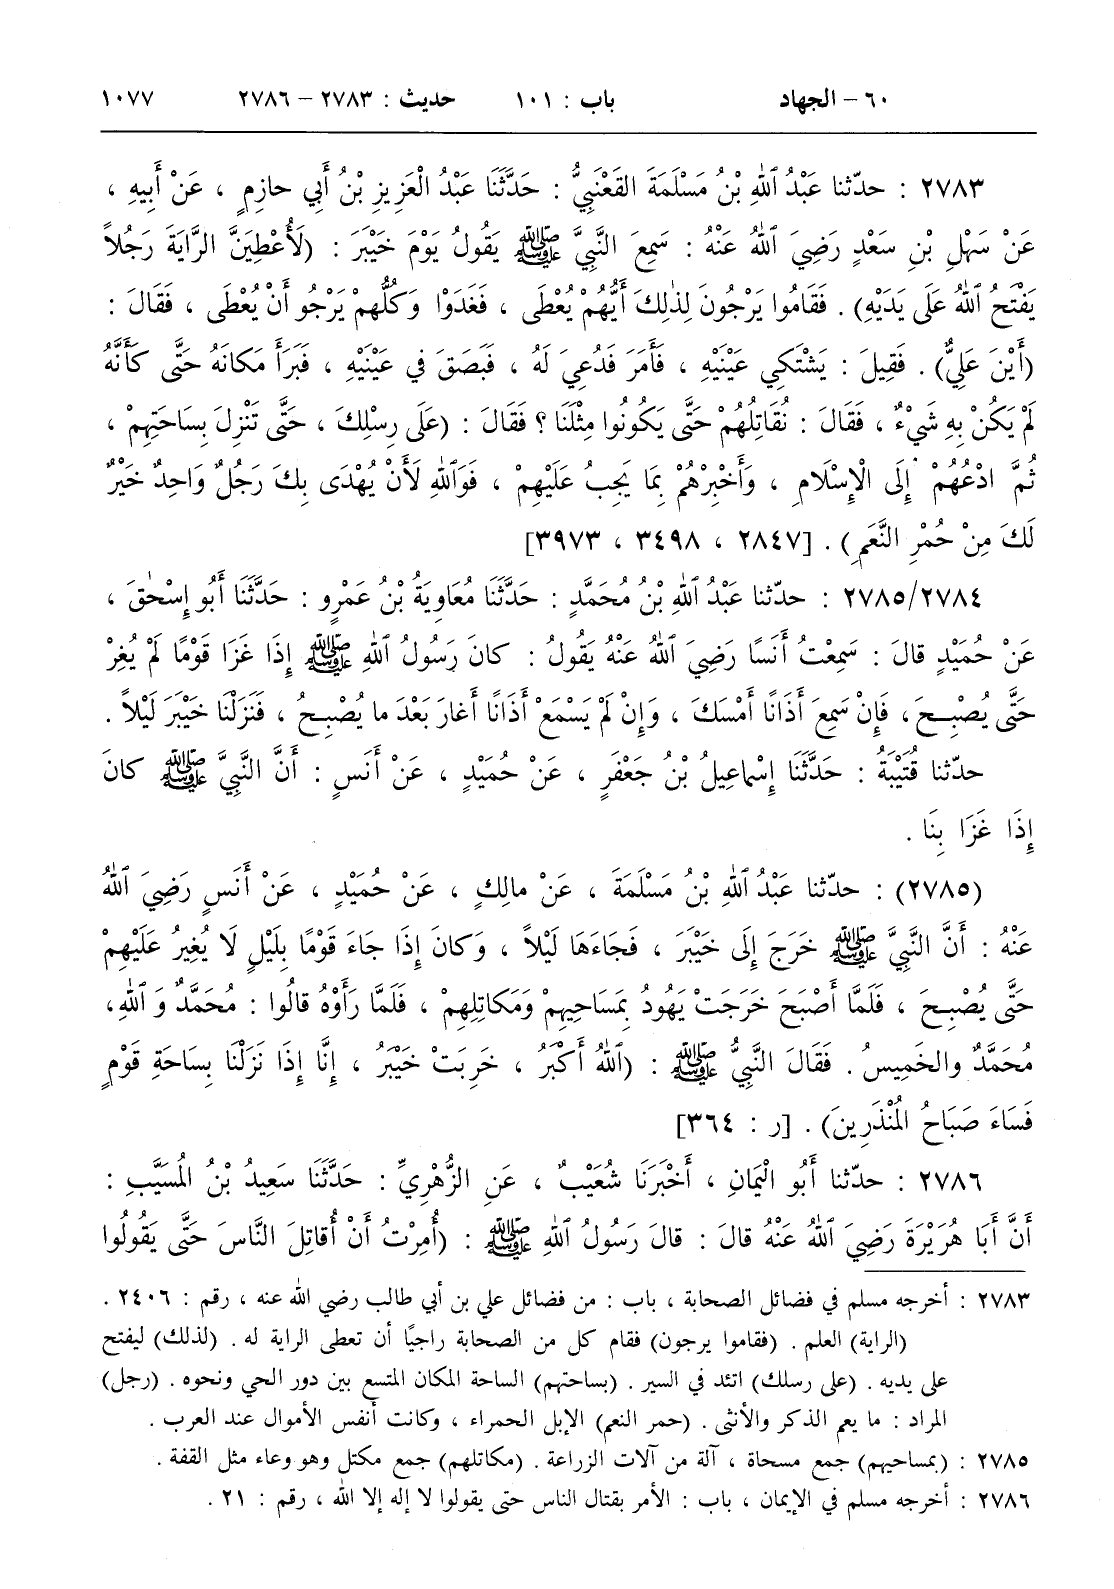 ٦٠ - الجهاد باب : ١٠١ حديث : ٢٧٨٣ - ٢٧٨٦ ١٠٧٧
٢٧٨٣ : حدّثنا عَبْدُ ٱللهِ بْنُ مَسْلَمَةَ القَعْنَبِيُّ : حَدَّثَنَا عَبْدُ الْعَزِيزِ بْنُ أَبِي حازِمٍ ، عَنْ أَبِيهِ ،
عَنْ سَهْلِ بْنِ سَعْدٍ رَضِيَ ٱللهُ عَنْهُ : سَمِعَ النَّبِيَّ ﷺ يَقُولُ يَوْمَ خَيْبَرَ : (لَأُعْطِيَنَّ الرَّايَةَ رَجُلاً
يَفْتَحُ ٱللهُ عَلَى يَدَيْهِ) . فَقَامُوا يَرْجُونَ لِذٰلِكَ أَيُّهُمْ يُعْطَى ، فَغَدَوْا وَكُلُّهُمْ يَرْجُو أَنْ يُعْطَى ، فَقَالَ :
(أَيْنَ عَلِيٌّ) . فَقِيلَ : يَشْتَكِي عَيْنَيْهِ ، فَأَمَرَ فَدُعِيَ لَهُ ، فَبَصَقَ في عَيْنَيْهِ ، فَبَرَأَ مَكانَهُ حَتَّى كَأَنَّهُ
لَمْ يَكُنْ بِهِ شَيْءٌ ، فَقَالَ : نُقَاتِلُهُمْ حَتَّى يَكُونُوا مِثْلَنَا ؟ فَقَالَ : (عَلَى رِسْلِكَ ، حَتَّى تَنْزِلَ بِسَاحَتِهِمْ ،
ثُمَّ ادْعُهُمْ إِلَى الْإِسْلَامِ ، وَأَخْبِرْهُمْ بِمَا يَجِبُ عَلَيْهِمْ ، فَوَٱللهِ لَأَنْ يُهْدَى بِكَ رَجُلٌ وَاحِدٌ خَيْرٌ
لَكَ مِنْ حُمْرِ النَّعَمِ) . [٢٨٤٧ ، ٣٤٩٨ ، ٣٩٧٣]
٢٧٨٥/٢٧٨٤ : حدّثنا عَبْدُ ٱللهِ بْنُ مُحَمَّدٍ : حَدَّثَنَا مُعَاوِيَةُ بْنُ عَمْرٍو : حَدَّثَنَا أَبُو إِسْحٰقَ ،
عَنْ حُمَيْدٍ قالَ : سَمِعْتُ أَنَسًا رَضِيَ ٱللهُ عَنْهُ يَقُولُ : كانَ رَسُولُ ٱللهِ ﷺ إِذَا غَزَا قَوْمًا لَمْ يُغِرْ
حَتَّى يُصْبِحَ ، فَإِنْ سَمِعَ أَذَانًا أَمْسَكَ ، وَإِنْ لَمْ يَسْمَعْ أَذَانًا أَغارَ بَعْدَ ما يُصْبِحُ ، فَنَزَلْنَا خَيْبَرَ لَيْلاً .
حدّثنا قُتَيْبَةُ : حَدَّثَنَا إِسْماعِيلُ بْنُ جَعْفَرٍ ، عَنْ حُمَيْدٍ ، عَنْ أَنَسٍ : أَنَّ النَّبِيَّ ﷺ كانَ
إِذَا غَزَا بِنَا .
(٢٧٨٥) : حدّثنا عَبْدُ ٱللهِ بْنُ مَسْلَمَةَ ، عَنْ مالِكٍ ، عَنْ حُمَيْدٍ ، عَنْ أَنَسٍ رَضِيَ ٱللهُ
عَنْهُ : أَنَّ النَّبِيَّ ﷺ خَرَجَ إِلَى خَيْبَرَ ، فَجَاءَهَا لَيْلاً ، وَكانَ إِذَا جَاءَ قَوْمًا بِلَيْلٍ لَا يُغِيرُ عَلَيْهِمْ
حَتَّى يُصْبِحَ ، فَلَمَّا أَصْبَحَ خَرَجَتْ يَهُودُ بِمَسَاحِيهِمْ وَمَكاتِلِهِمْ ، فَلَمَّا رَأَوْهُ قالُوا : مُحَمَّدٌ وَٱللهِ ،
مُحَمَّدٌ والخَمِيسُ . فَقَالَ النَّبِيُّ ﷺ : (ٱللهُ أَكْبَرُ ، خَرِبَتْ خَيْبَرُ ، إِنَّا إِذَا نَزَلْنَا بِسَاحَةِ قَوْمٍ
فَسَاءَ صَبَاحُ المُنْذَرِينَ) . [ر : ٣٦٤]
٢٧٨٦ : حدّثنا أَبُو الْيَمَانِ ، أَخْبَرَنَا شُعَيْبٌ ، عَنِ الزُّهْرِيِّ : حَدَّثَنَا سَعِيدُ بْنُ المُسَيَّبِ :
أَنَّ أَبَا هُرَيْرَةَ رَضِيَ ٱللهُ عَنْهُ قالَ : قالَ رَسُولُ ٱللهِ ﷺ : (أُمِرْتُ أَنْ أُقاتِلَ النَّاسَ حَتَّى يَقُولُوا
٢٧٨٣ : أخرجه مسلم في فضائل الصحابة ، باب : من فضائل علي بن أبي طالب رضي الله عنه ، رقم : ٢٤٠٦ .
(الراية) العلم . (فقاموا يرجون) فقام كل من الصحابة راجيًا أن تعطى الراية له . (لذلك) ليفتح
على يديه . (على رسلك) اتئد في السير . (بساحتهم) الساحة المكان المتسع بين دور الحي ونحوه . (رجل)
المراد : ما يعم الذكر والأنثى . (حمر النعم) الإبل الحمراء ، وكانت أنفس الأموال عند العرب .
٢٧٨٥ : (بمساحيهم) جمع مسحاة ، آلة من آلات الزراعة . (مكاتلهم) جمع مكتل وهو وعاء مثل القفة .
٢٧٨٦ : أخرجه مسلم في الإيمان ، باب : الأمر بقتال الناس حتى يقولوا لا إله إلا الله ، رقم : ٢١ .